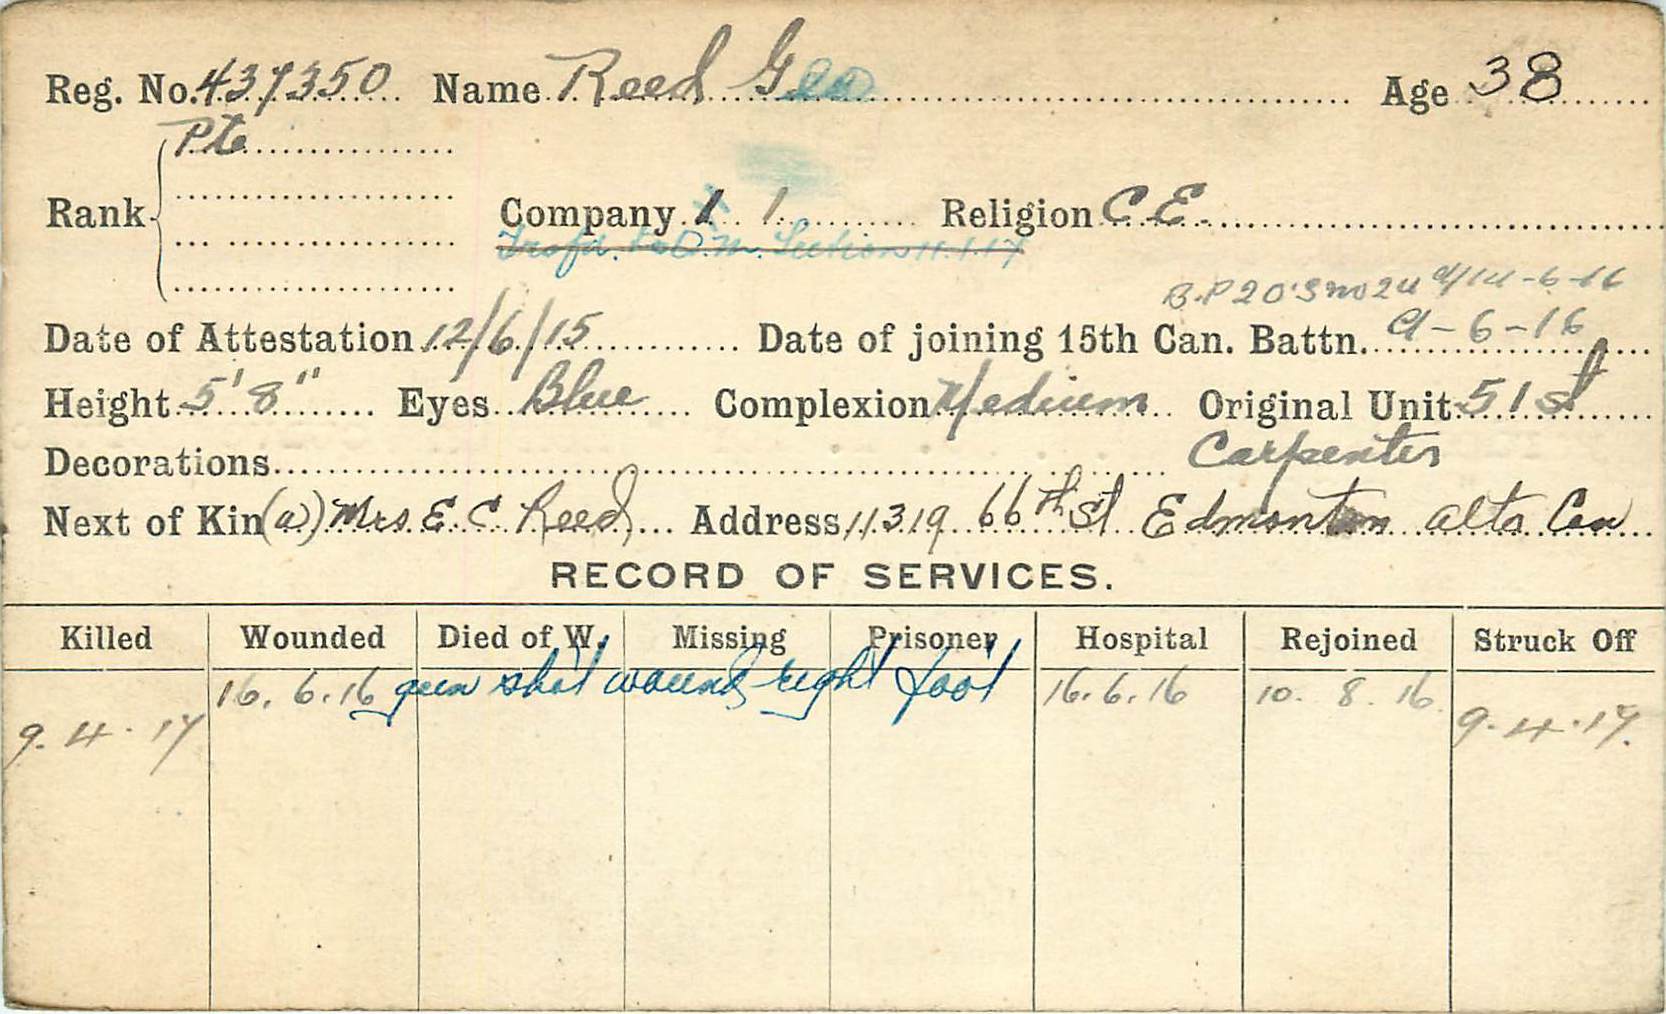 Reg. No. 437350 Name Reed Geo Age 38
Pte
Rank Company 1 1 Religion C.E.
Trsfd. to Q.M. Section 11.1.17
B.P 20's no 24 d/14-6-16
Date of Attestation 12/6/15 Date of joining 15th Can. Battn. 9-6-16
Height 5' 8" Eyes Blue Complexion Medium Original Unit 51st
Decorations Carpenter
Next of Kin (a) Mrs. E. C. Reed Address 11319 66th St Edmonton Alta Can
RECORD OF SERVICES.
Killed Wounded Died of W. Missing Prisoner Hospital Rejoined Struck Off
16. 6. 16 gun shot wound right foot 16. 6. 16 10. 8. 16
9. 4. 17 9. 4. 17.